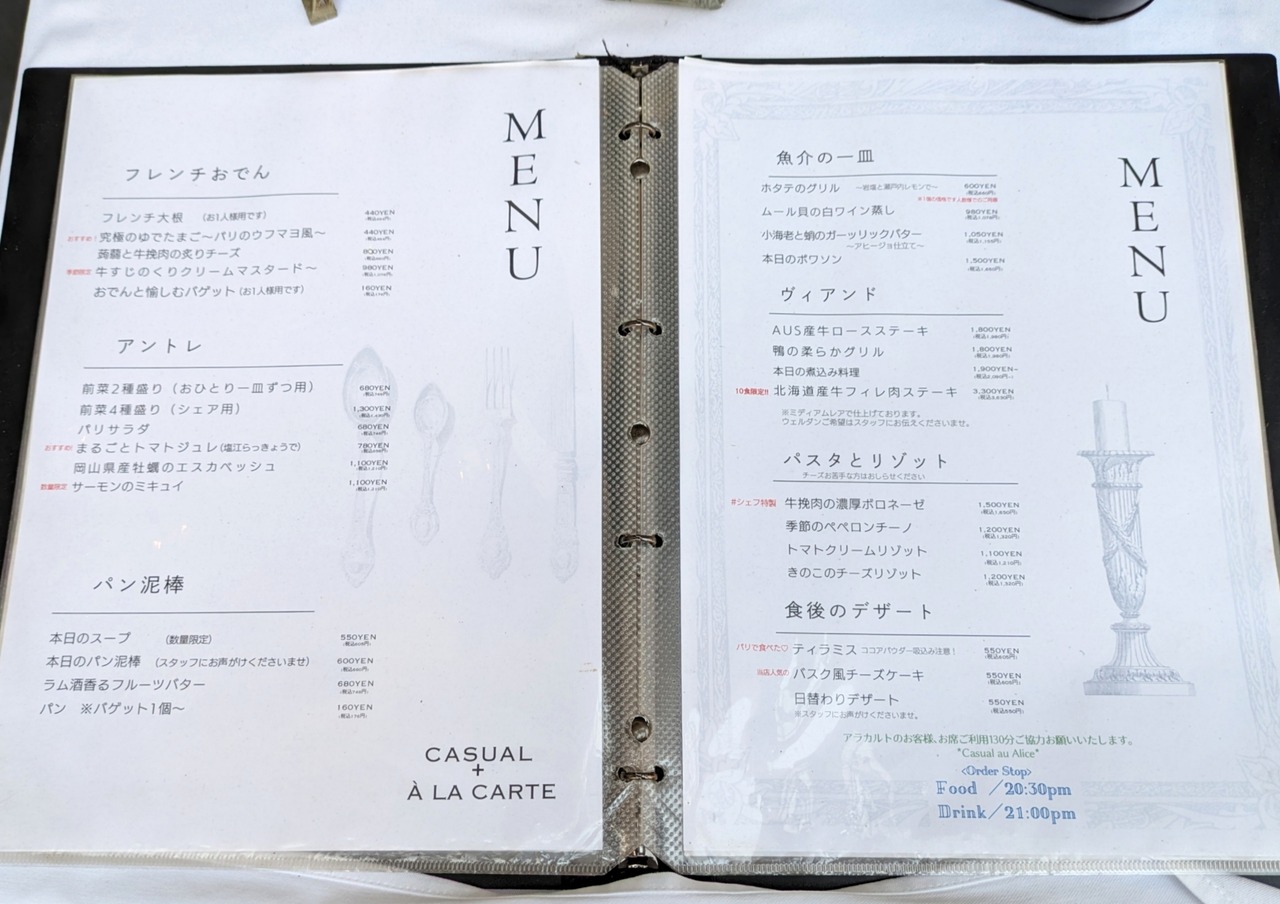 MENU
フレンチおでん
フレンチ大根 （お1人様用です） 440YEN
おすすめ！ 究極のゆでたまご～パリのウフマヨ風～ 440YEN
蒟蒻と牛挽肉の炙りチーズ 800YEN
季節限定 牛すじのくりクリームマスタード～ 980YEN
おでんと愉しむバゲット（お1人様用です） 160YEN
アントレ
前菜2種盛り（おひとり一皿ずつ用） 680YEN
前菜4種盛り（シェア用） 1,300YEN
パリサラダ 680YEN
おすすめ！ まるごとトマトジュレ（塩江らっきょうで） 780YEN
岡山県産牡蠣のエスカベッシュ 1,100YEN
数量限定 サーモンのミキュイ 1,100YEN
パン泥棒
本日のスープ （数量限定） 550YEN
本日のパン泥棒 （スタッフにお声がけくださいませ） 600YEN
ラム酒香るフルーツバター 680YEN
パン ※バゲット1個～ 160YEN
CASUAL
+
À LA CARTE
MENU
魚介の一皿
ホタテのグリル ～岩塩と瀬戸内レモンで～ 600YEN
ムール貝の白ワイン蒸し 980YEN
小海老と蛸のガーッリックバター 1,050YEN
～アヒージョ仕立て～
本日のポワソン 1,500YEN
ヴィアンド
AUS産牛ロースステーキ 1,800YEN
鴨の柔らかグリル 1,800YEN
本日の煮込み料理 1,900YEN~
10食限定!! 北海道産牛フィレ肉ステーキ 3,300YEN
※ミディアムレアで仕上げております。
ウェルダンご希望はスタッフにお伝えくださいませ。
パスタとリゾット
チーズお苦手な方はおしらせください
#シェフ特製 牛挽肉の濃厚ボロネーゼ 1,500YEN
季節のペペロンチーノ 1,200YEN
トマトクリームリゾット 1,100YEN
きのこのチーズリゾット 1,200YEN
食後のデザート
パリで食べた♡ ティラミス ココアパウダー吸込み注意！ 550YEN
当店人気の バスク風チーズケーキ 550YEN
日替わりデザート 550YEN
※スタッフにお声がけくださいませ。
アラカルトのお客様、お席ご利用130分ご協力お願いいたします。
*Casual au Alice*
<Order Stop>
Food ／20:30pm
Drink／21:00pm